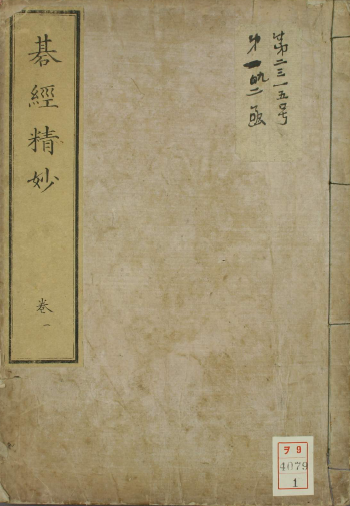 第二三一五号
第一九二函
碁經精妙
卷一
ヲ9
4079
1